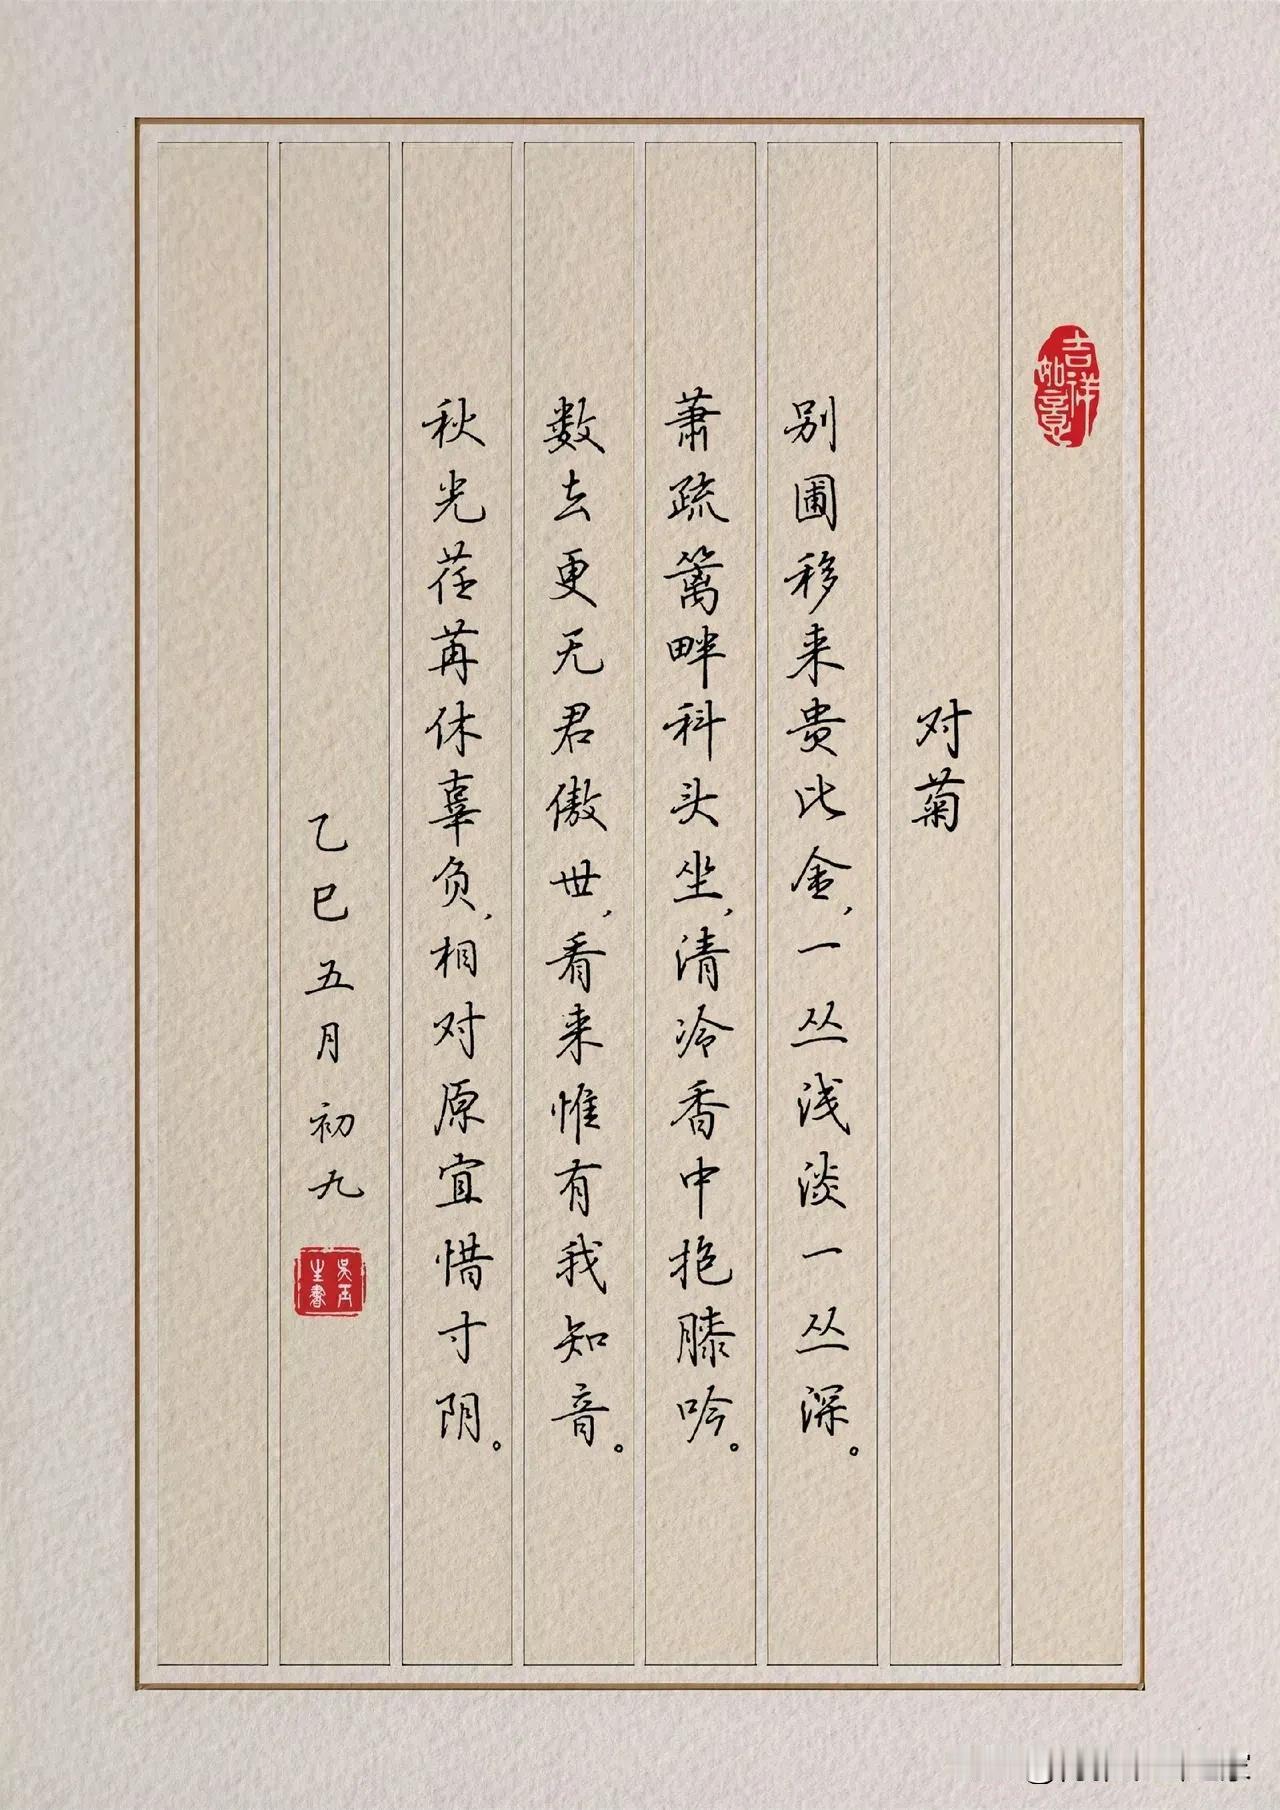 吉祥如意
对菊
别圃移来贵比金，一丛浅淡一丛深。
萧疏篱畔科头坐，清冷香中抱膝吟。
数去更无君傲世，看来惟有我知音。
秋光荏苒休辜负，相对原宜惜寸阴。
乙巳五月初九